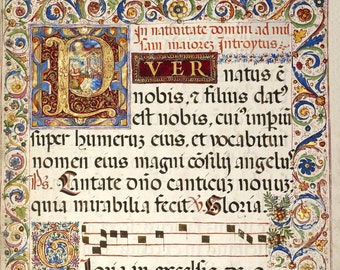 In nativitate domini ad mi
sam maiorez Introytus
PVER
natus ē
nobis, & filius dat⁹
est nobis, cui⁹ impiū
super humeruz eius, et vocabitur
nomen eius magni cōsilij angelu⁹
Ps. Cantate dño canticuz novuz
quia mirabilia fecit. V. Gloria.
Gloria in excelsis de o